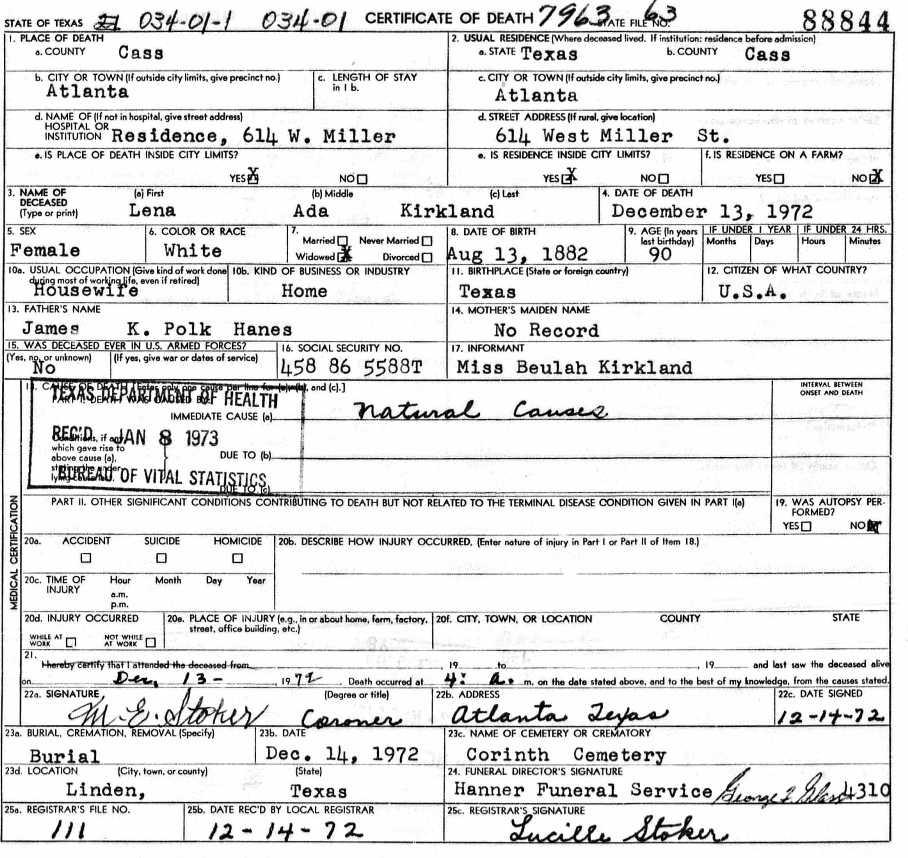 STATE OF TEXAS 034-01-1 034-01 CERTIFICATE OF DEATH 7963 STATE FILE NO. 63 88844
1. PLACE OF DEATH 2. USUAL RESIDENCE (Where deceased lived. If institution: residence before admission)
a. COUNTY Cass a. STATE Texas b. COUNTY Cass
b. CITY OR TOWN (If outside city limits, give precinct no.) c. LENGTH OF STAY in 1 b. c. CITY OR TOWN (If outside city limits, give precinct no.)
Atlanta Atlanta
d. NAME OF (If not in hospital, give street address) d. STREET ADDRESS (If rural, give location)
HOSPITAL OR
INSTITUTION Residence, 614 W. Miller 614 West Miller St.
e. IS PLACE OF DEATH INSIDE CITY LIMITS? e. IS RESIDENCE INSIDE CITY LIMITS? f. IS RESIDENCE ON A FARM?
YES X NO YES X NO YES NO X
3. NAME OF DECEASED (Type or print) (a) First (b) Middle (c) Last 4. DATE OF DEATH
Lena Ada Kirkland December 13, 1972
5. SEX 6. COLOR OR RACE 7. Married Never Married 8. DATE OF BIRTH 9. AGE (In years last birthday) IF UNDER 1 YEAR IF UNDER 24 HRS.
Months Days Hours Minutes
Female White Widowed X Divorced Aug 13, 1882 90
10a. USUAL OCCUPATION (Give kind of work done during most of working life, even if retired) 10b. KIND OF BUSINESS OR INDUSTRY 11. BIRTHPLACE (State or foreign country) 12. CITIZEN OF WHAT COUNTRY?
Housewife Home Texas U.S.A.
13. FATHER'S NAME 14. MOTHER'S MAIDEN NAME
James K. Polk Hanes No Record
15. WAS DECEASED EVER IN U.S. ARMED FORCES? 16. SOCIAL SECURITY NO. 17. INFORMANT
(Yes, no, or unknown) (If yes, give war or dates of service)
No 458 86 5588T Miss Beulah Kirkland
18. CAUSE OF DEATH [Enter only one cause per line for (a), (b), and (c).] INTERVAL BETWEEN ONSET AND DEATH
PART I. DEATH WAS CAUSED BY:
TEXAS DEPARTMENT OF HEALTH
IMMEDIATE CAUSE (a) Natural Causes
REC'D JAN 8 1973
Conditions, if any which gave rise to above cause (a), stating the under lying cause last.
DUE TO (b)
BUREAU OF VITAL STATISTICS
DUE TO (c)
PART II. OTHER SIGNIFICANT CONDITIONS CONTRIBUTING TO DEATH BUT NOT RELATED TO THE TERMINAL DISEASE CONDITION GIVEN IN PART I(a) 19. WAS AUTOPSY PERFORMED?
YES NO X
MEDICAL CERTIFICATION
20a. ACCIDENT SUICIDE HOMICIDE 20b. DESCRIBE HOW INJURY OCCURRED. (Enter nature of injury in Part I or Part II of Item 18.)
20c. TIME OF INJURY Hour Month Day Year
a.m.
p.m.
20d. INJURY OCCURRED 20e. PLACE OF INJURY (e.g., in or about home, farm, factory, street, office building, etc.) 20f. CITY, TOWN, OR LOCATION COUNTY STATE
WHILE AT WORK NOT WHILE AT WORK
21. I hereby certify that I attended the deceased from 19 to 19 and last saw the deceased alive
on Dec, 13- 1972. Death occurred at 4: a. m, on the date stated above, and to the best of my knowledge, from the causes stated.
22a. SIGNATURE (Degree or title) 22b. ADDRESS 22c. DATE SIGNED
M. E. Stoker Coroner Atlanta Texas 12-14-72
23a. BURIAL, CREMATION, REMOVAL (Specify) 23b. DATE 23c. NAME OF CEMETERY OR CREMATORY
Burial Dec. 14, 1972 Corinth Cemetery
23d. LOCATION (City, town, or county) (State) 24. FUNERAL DIRECTOR'S SIGNATURE
Linden, Texas Hanner Funeral Service George 4310
25a. REGISTRAR'S FILE NO. 25b. DATE REC'D BY LOCAL REGISTRAR 25c. REGISTRAR'S SIGNATURE
111 12-14-72 Lucille Stoker